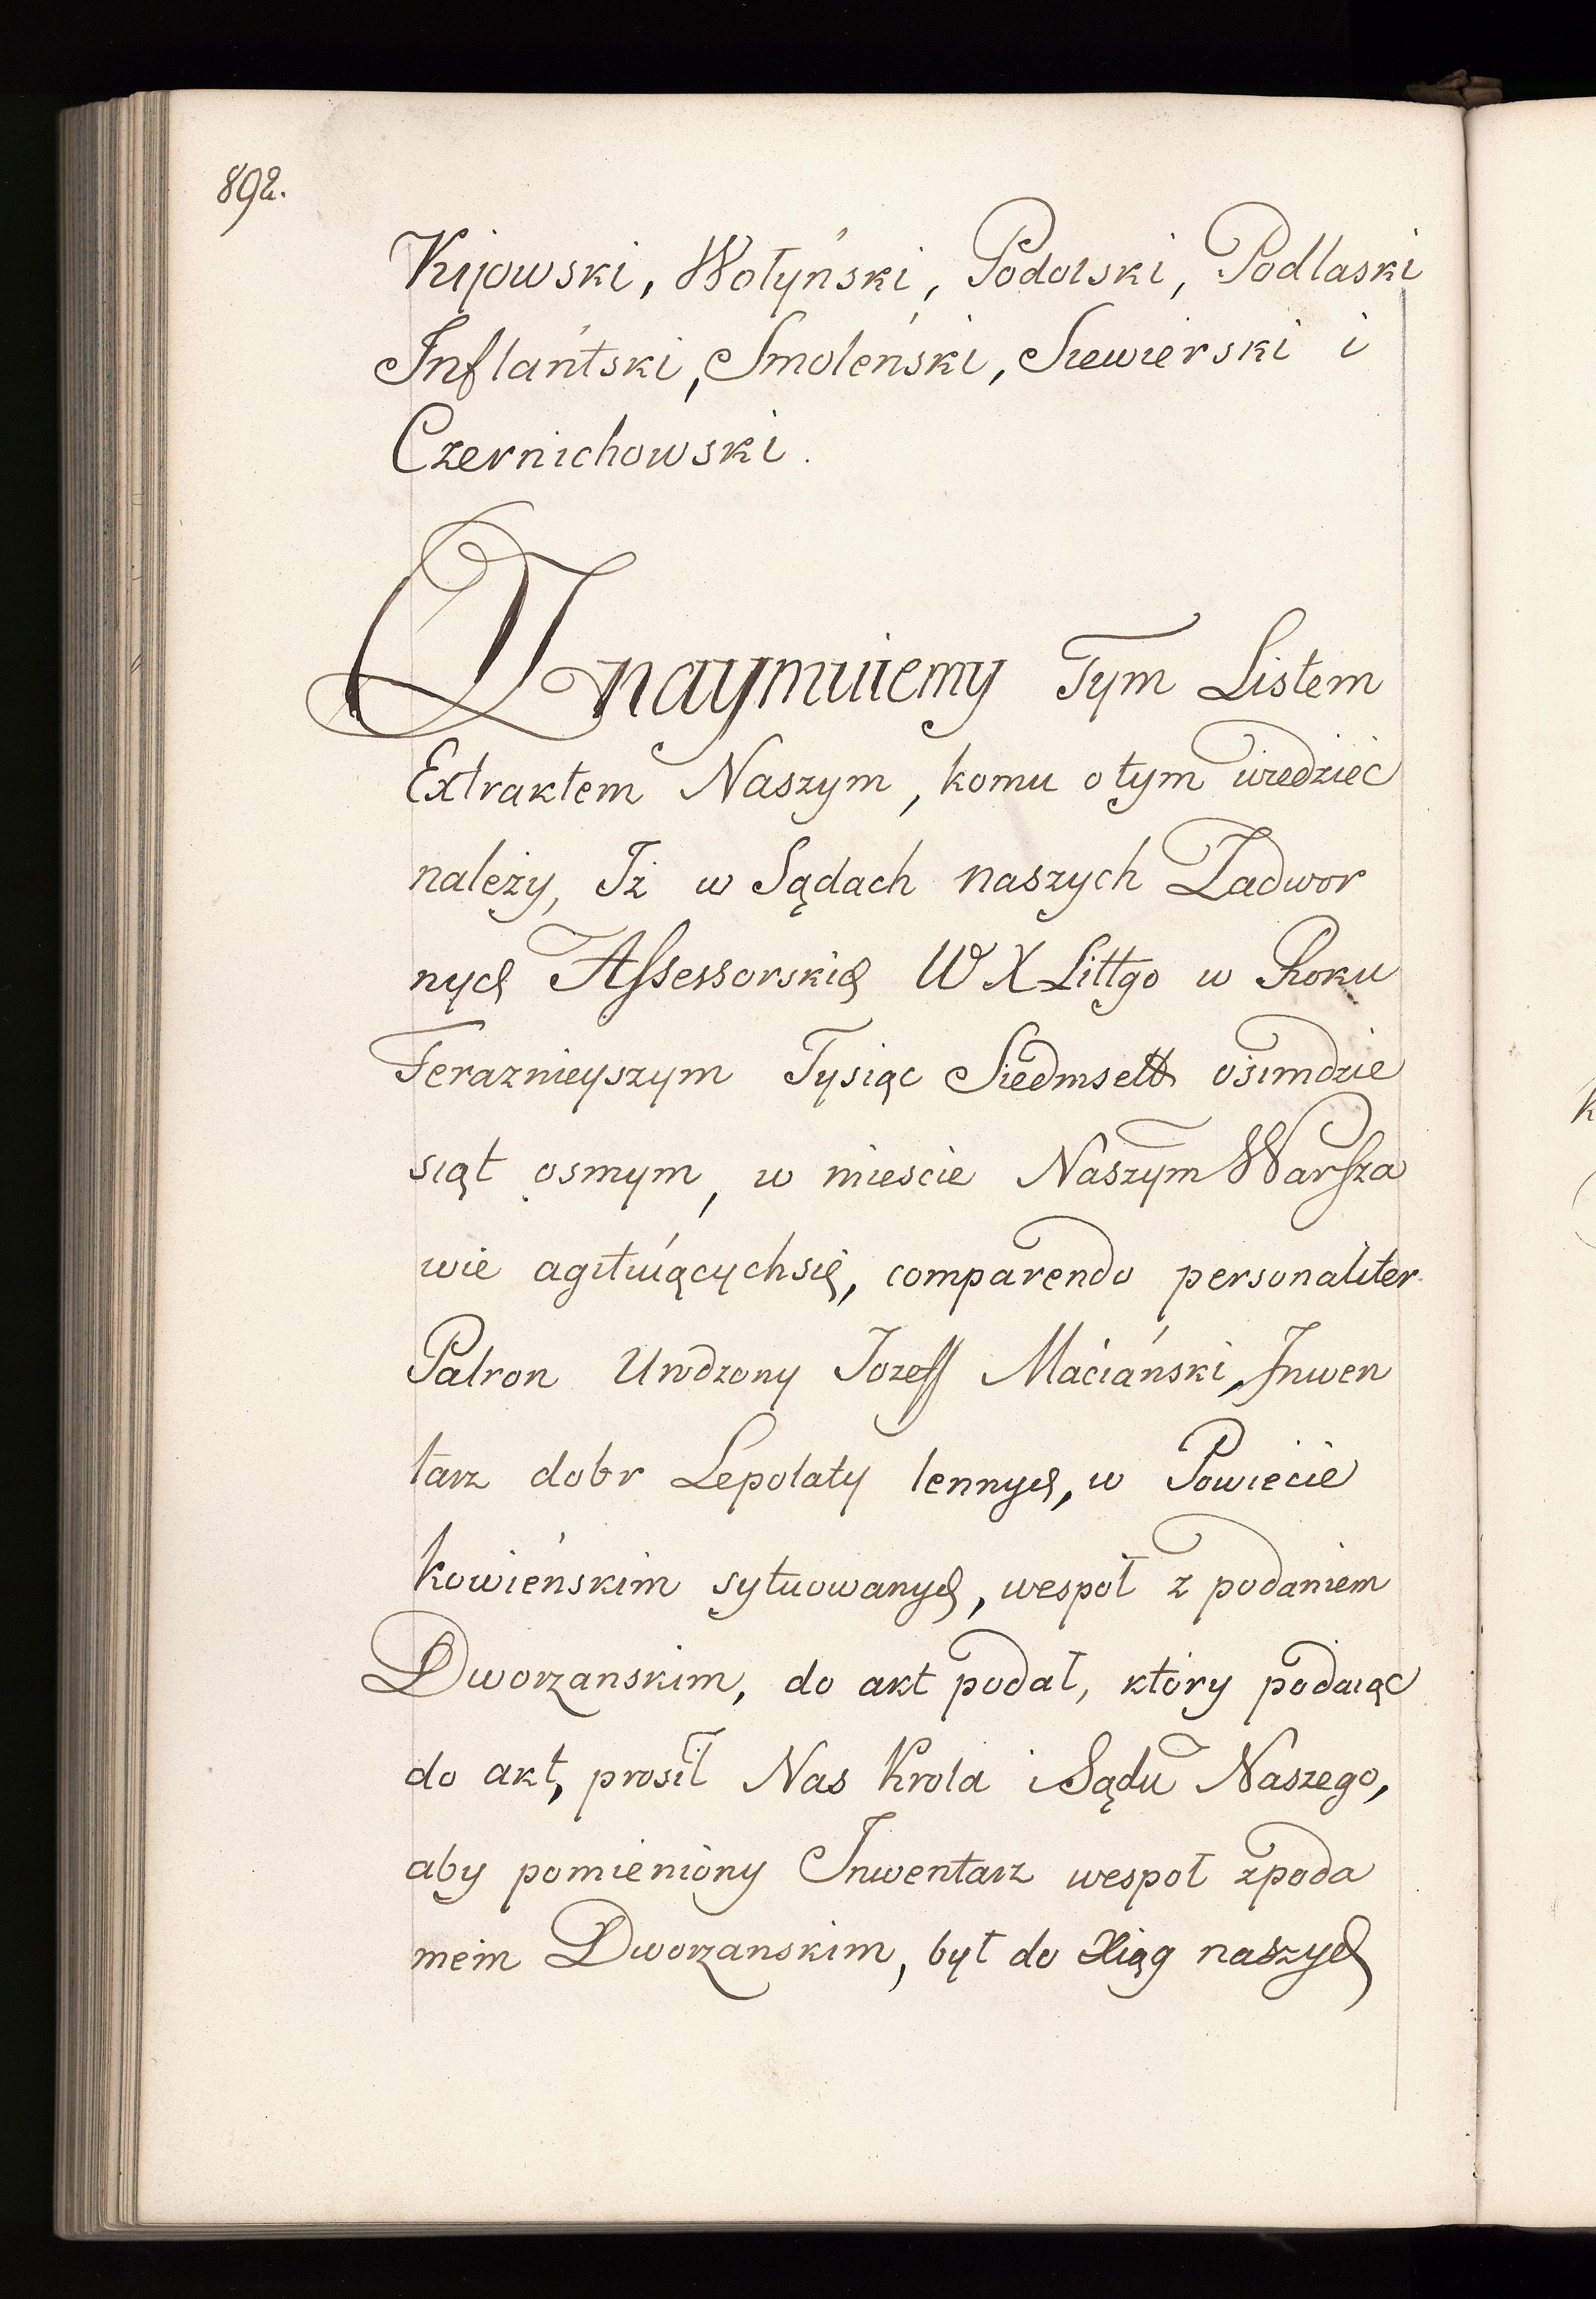 892.
Kijowski, Wołyński, Podolski, Podlaski
Inflańtski, Smoleński, Siewierski i
Czernichowski.
Oznaymuiemy Tym Listem
Extraktem Naszym, komu o tym wiedzieć
należy, Iż w Sądach naszych Zadwor
nych Assessorskich W X Littgo w Roku
Teraznieyszym Tysiąc Siedmsett osimdzie
siąt osmym, w miescie Naszym Warsza
wie agituiących się, comparendo personaliter
Patron Urodzony Jozeff Maciański, Inwen
tarz dobr Lepolaty lennych, w Powiecie
kowieńskim sytuowanych, wespoł z podaniem
Dworzanskim, do akt podał, który podaiąc
do akt, prosił Nas Krola i Sądu Naszego,
aby pomieniony Inwentarz wespoł z poda
niem Dworzanskim, był do Xiąg naszych